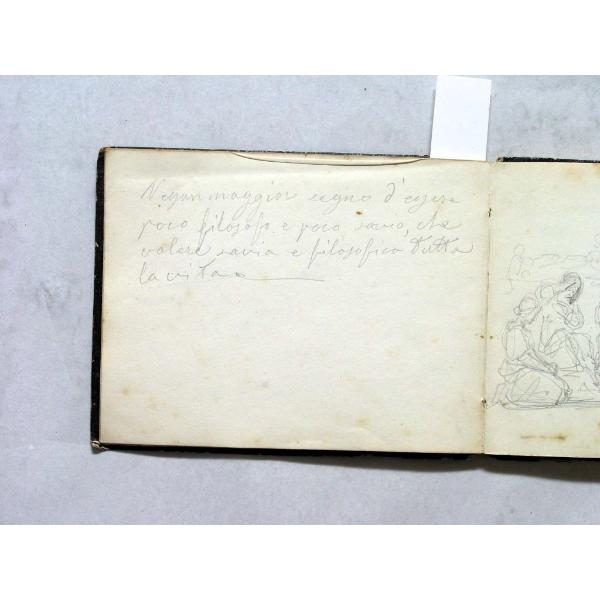 Nessun maggior segno d'essere
poco filosofo e poco savio, che
volere savia e filosofica tutta
la vita